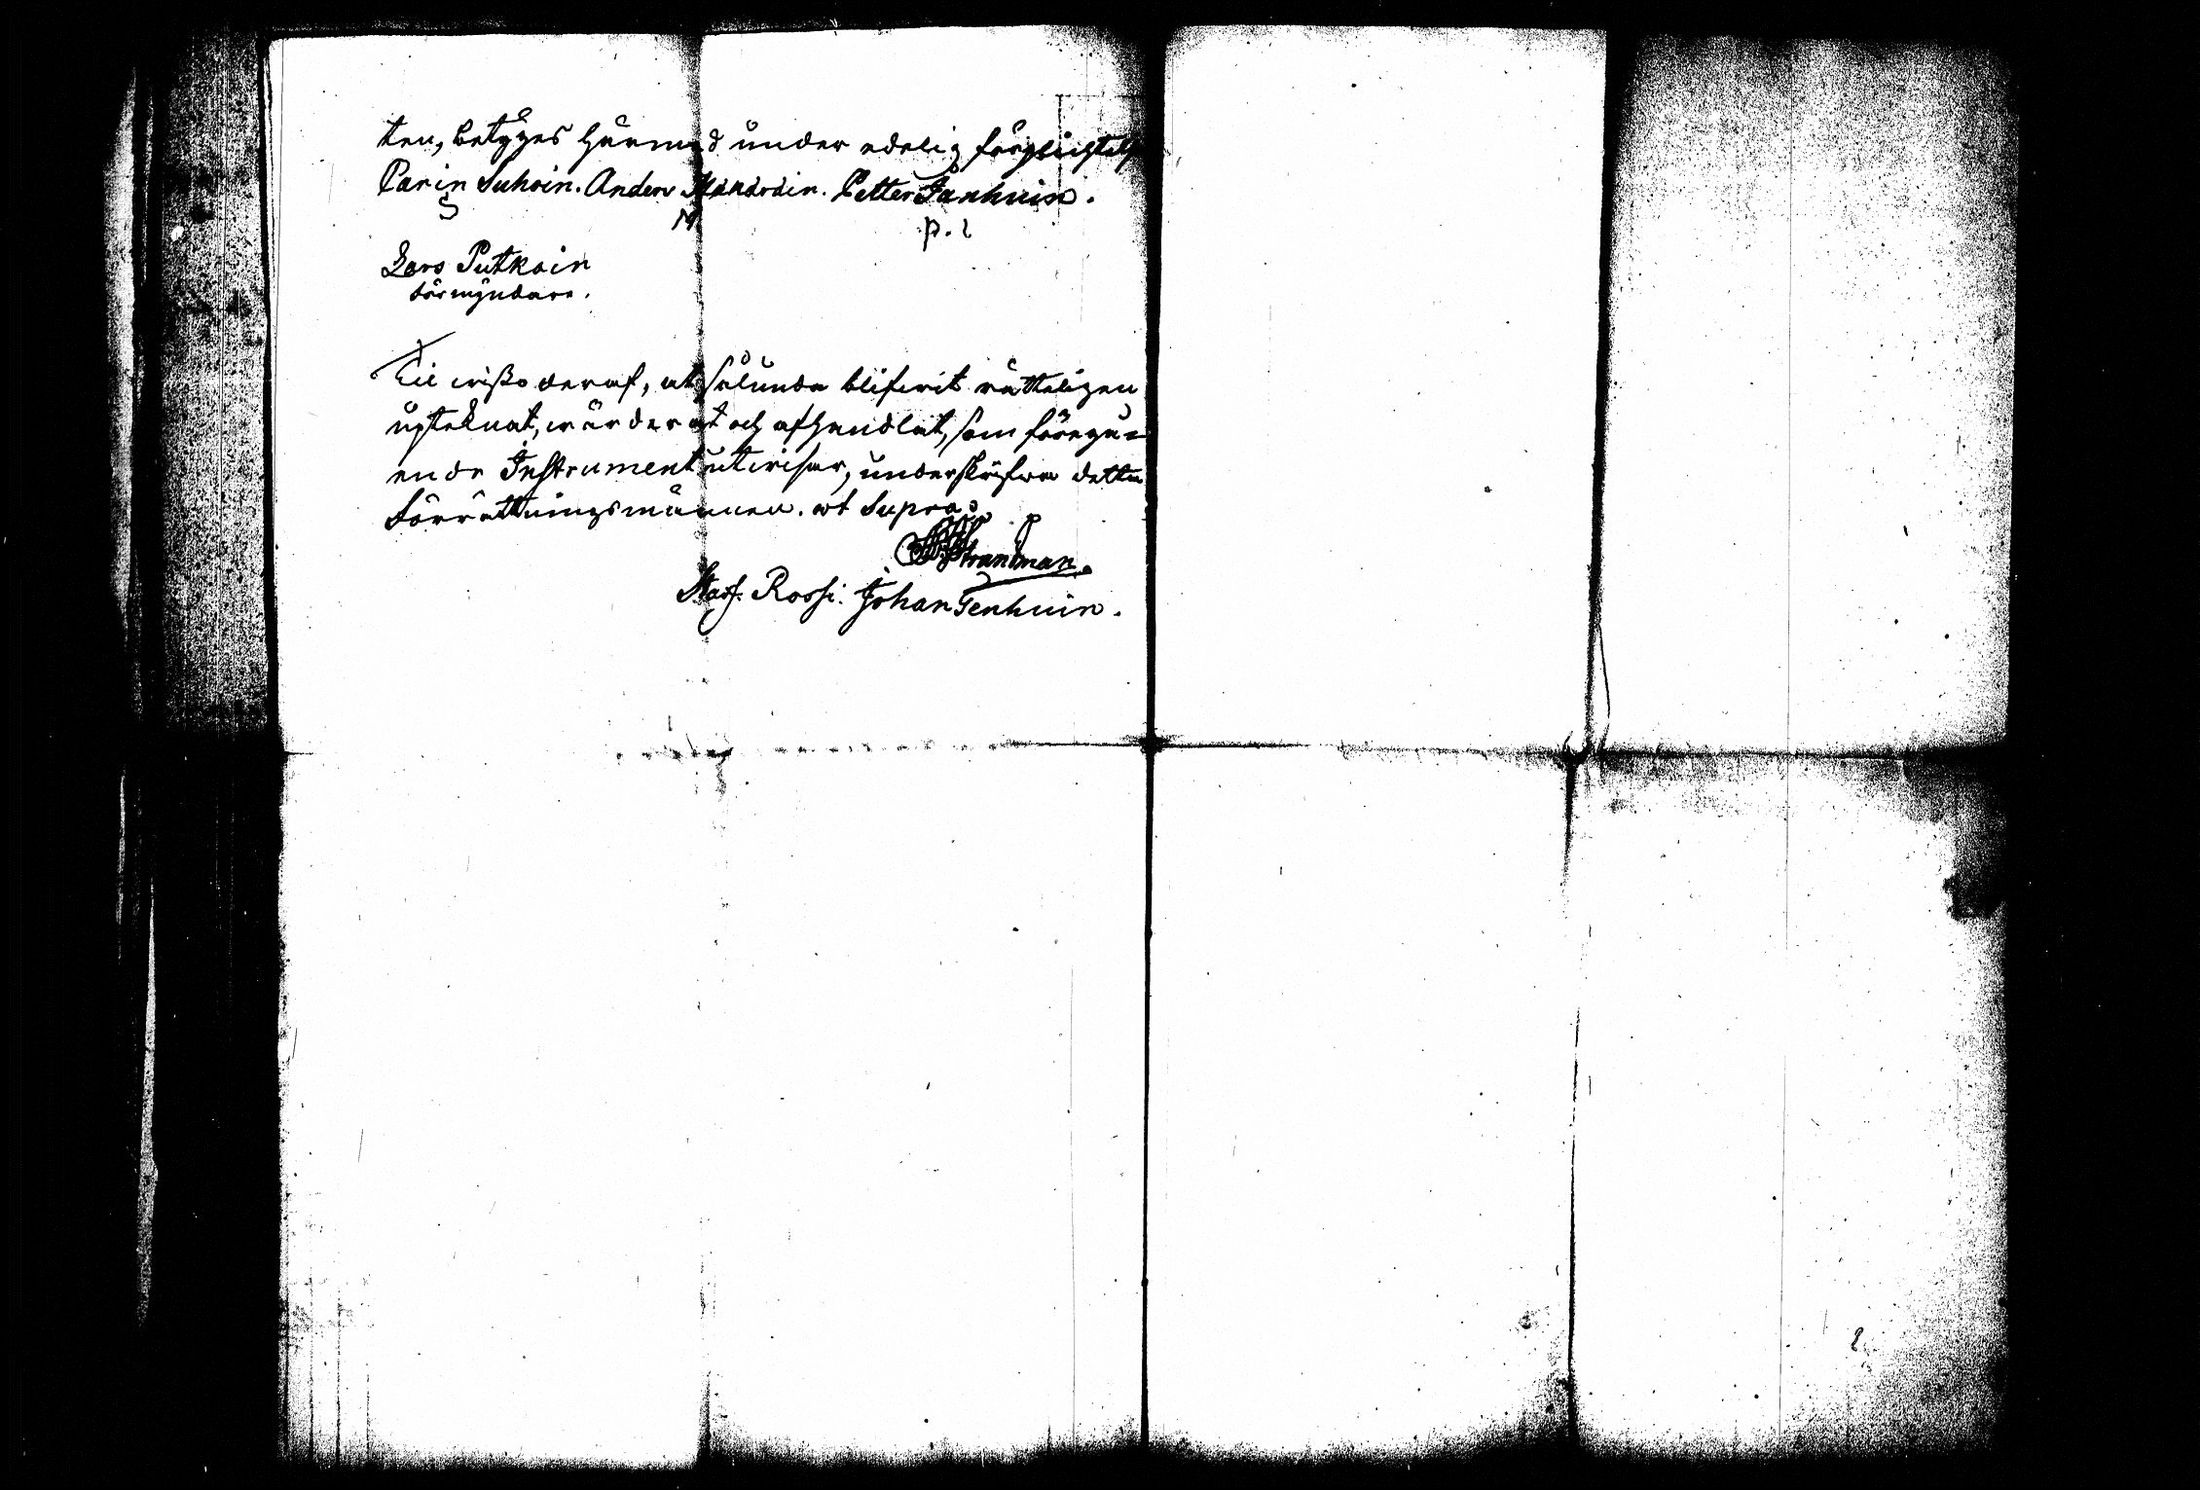 ten, betyges härmed under edelig förplichtelse
Parin Suhoin. Anders Petter Janhuin.
Lars Putkoin
förmyndare.
Til wisso deraf, at sålunda blifwit rätteligen
upteknat, wärderat och afhandlat, som föregå=
ende Instrument utwisar, underskrifwa detta
Förrättningsmännen. ut Supra
Strandman.
Staf. Rossi. Johan Tenhuin.